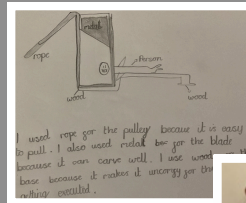 metal
rope
Person
wood
wood
I used rope for the pulley becaue it is easy
to pull. I also used metal for the blade
because it can carve well. I use wood
base because it makes it uncomgy for the
getting executed.